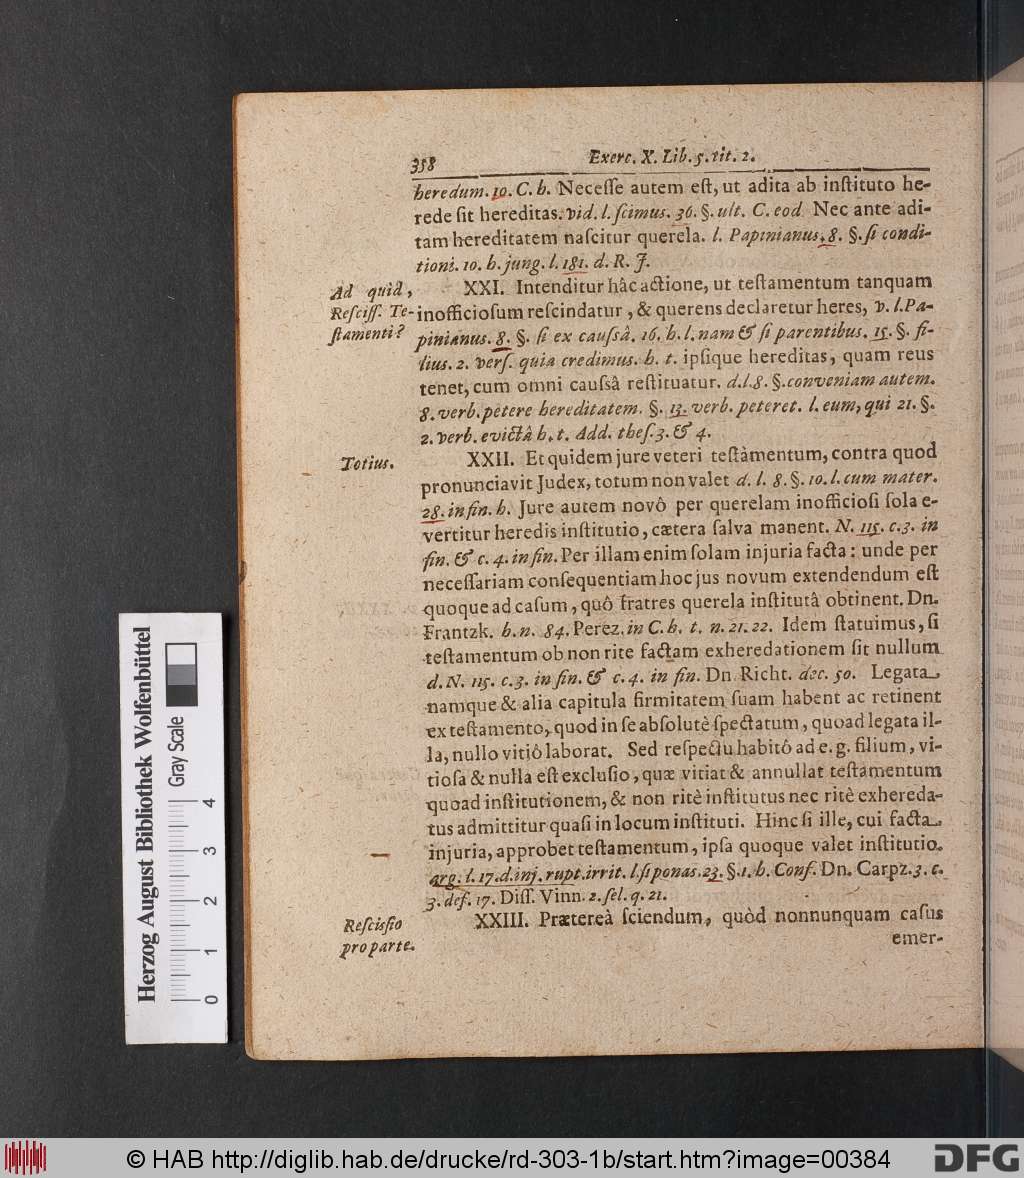 358 Exerc. X. Lib. 5. tit. 2.
heredum. 10. C. h. Neceſſe autem eſt, ut adita ab inſtituto he-
rede ſit hereditas. vid. l. ſcimus. 36. §. ult. C. eod. Nec ante adi-
tam hereditatem naſcitur querela. l. Papinianus. 8. §. ſi condi-
tioni. 10. h. jung. l. 181. d. R. J.
Ad quid,
Reſciſſ. Te-
ſtamenti?
XXI. Intenditur hâc actione, ut teſtamentum tanquam
inofficioſum reſcindatur, & querens declaretur heres, v. l. Pa-
pinianus. 8. §. ſi ex cauſsâ. 16. h. l. nam & ſi parentibus. 15. §. fi-
lius. 2. verſ. quia credimus. h. t. ipſique hereditas, quam reus
tenet, cum omni cauſsâ reſtituatur. d. l. 8. §. conveniam autem.
8. verb. petere hereditatem. §. 13. verb. peteret. l. eum, qui 21. §.
2. verb. evictâ h. t. Add. theſ. 3. & 4.
Totius.
XXII. Et quidem jure veteri teſtàmentum, contra quod
pronunciavit Judex, totum non valet d. l. 8. §. 10. l. cum mater.
28. in fin. h. Jure autem novô per querelam inofficioſi ſola e-
vertitur heredis inſtitutio, cætera ſalva manent. N. 115. c. 3. in
fin. & c. 4. in fin. Per illam enim ſolam injuria facta: unde per
neceſſariam conſequentiam hoc jus novum extendendum eſt
quoque ad caſum, quô fratres querela inſtitutâ obtinent. Dn.
Frantzk. h. n. 84. Perez. in C. h. t. n. 21. 22. Idem ſtatuimus, ſi
teſtamentum ob non rite factam exheredationem ſit nullum
d. N. 115. c. 3. in fin. & c. 4. in fin. Dn. Richt. dec. 50. Legata
namque & alia capitula firmitatem ſuam habent ac retinent
ex teſtamento, quod in ſe abſolutè ſpectatum, quoad legata il-
la, nullo vitiô laborat. Sed reſpectu habitô ad e. g. filium, vi-
tioſa & nulla eſt excluſio, quæ vitiat & annullat teſtamentum
quoad inſtitutionem, & non ritè inſtitutus nec ritè exhereda-
tus admittitur quaſi in locum inſtituti. Hinc ſi ille, cui facta
injuria, approbet teſtamentum, ipſa quoque valet inſtitutio.
arg. l. 17. d. inj. rupt. irrit. l. ſi ponas. 23. §. 1. h. Conf. Dn. Carpz. 3. c.
3. def. 17. Diſſ. Vinn. 2. ſel. q. 21.
Reſciſſio
pro parte.
XXIII. Prætereà ſciendum, quòd nonnunquam caſus
emer-
Herzog August Bibliothek Wolfenbüttel
Gray Scale
0 1 2 3 4
© HAB http://diglib.hab.de/drucke/rd-303-1b/start.htm?image=00384
DFG